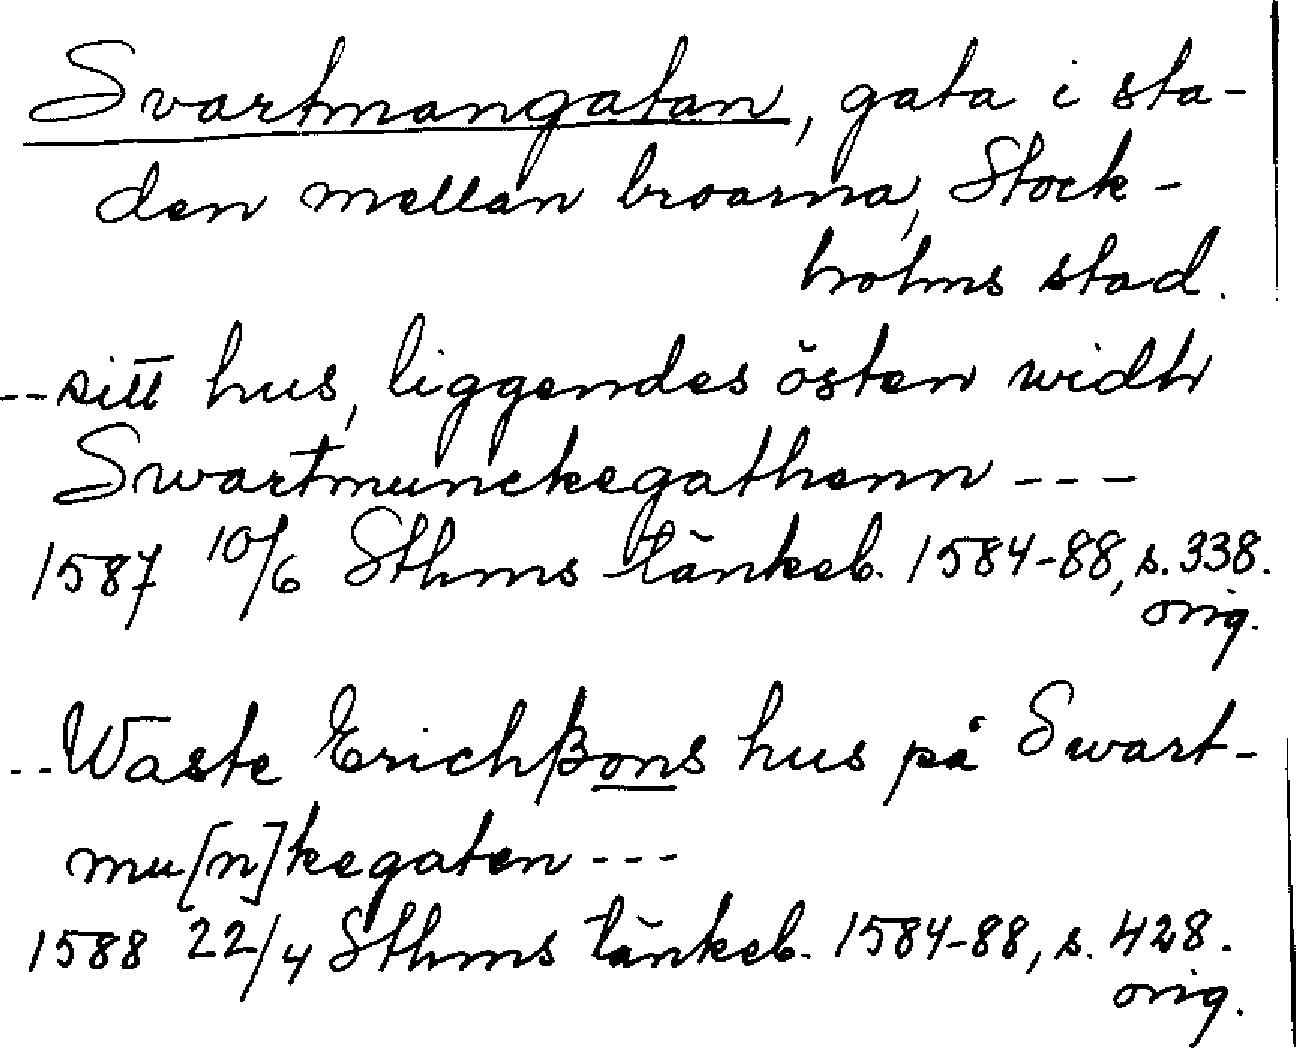 Svartmangatan, gata i sta-
den mellan broarna, Stock-
holms stad.
--sitt hus, liggendes östen widh
Swartmunckegathenn ---
1587 10/6 Sthms tänkeb. 1584-88, s. 338.
orig.
--Waste Erichßons hus på Swart-
mu[n]kegaten ---
1588 22/4 Sthms tänkeb. 1584-88, s. 428.
orig.